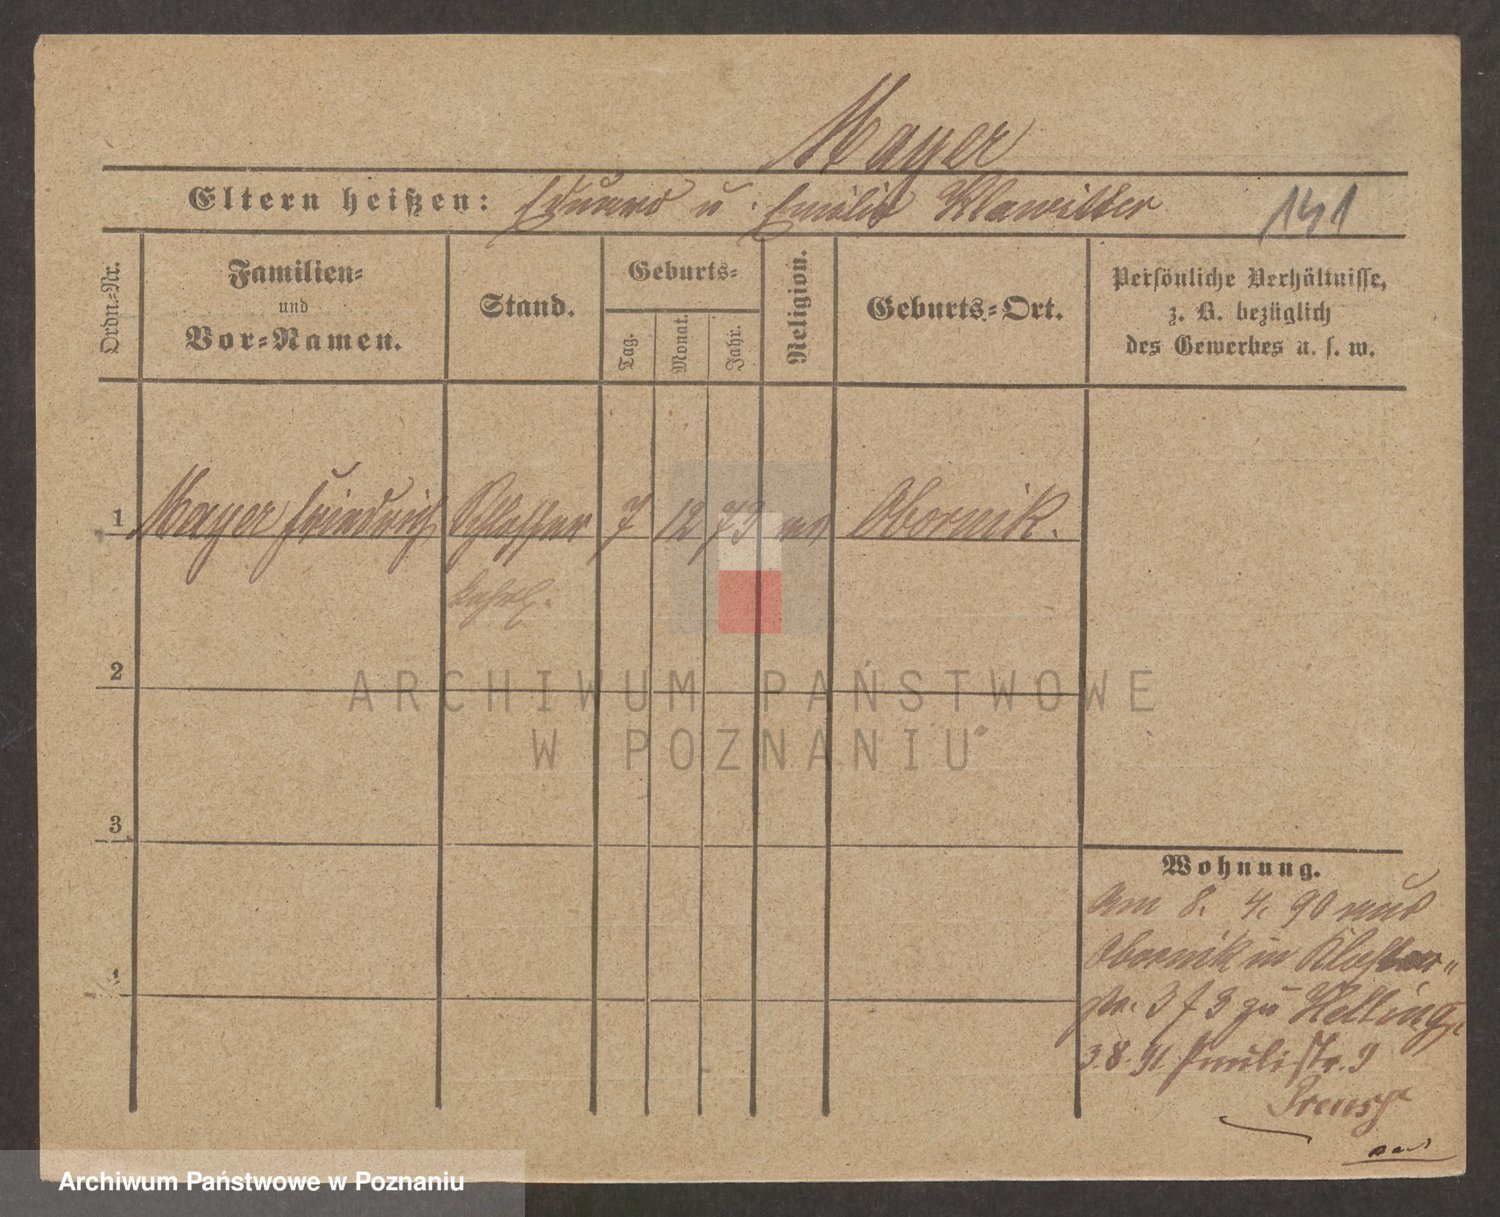 Mayer
Eltern heißen: Eduard u. Emilie Klawitter 141
Ordn.-Nr.
Familien-
und
Vor-Namen.
Stand.
Geburts-
Tag.
Monat.
Jahr.
Religion.
Geburts-Ort.
Persönliche Verhältnisse,
z. B. bezüglich
des Gewerbes u. s. w.
1 Mayer Friedrich Schlosser 7 12 73 Obornik.
Lehrl.
2
3
4
ARCHIWUM PAŃSTWOWE
W POZNANIU
Wohnung.
Am 8. 4. 90 aus
Obornik in Kloster-
str. 3 f 3 zu
3.8.91 Paulistr. 9
Archiwum Państwowe w Poznaniu